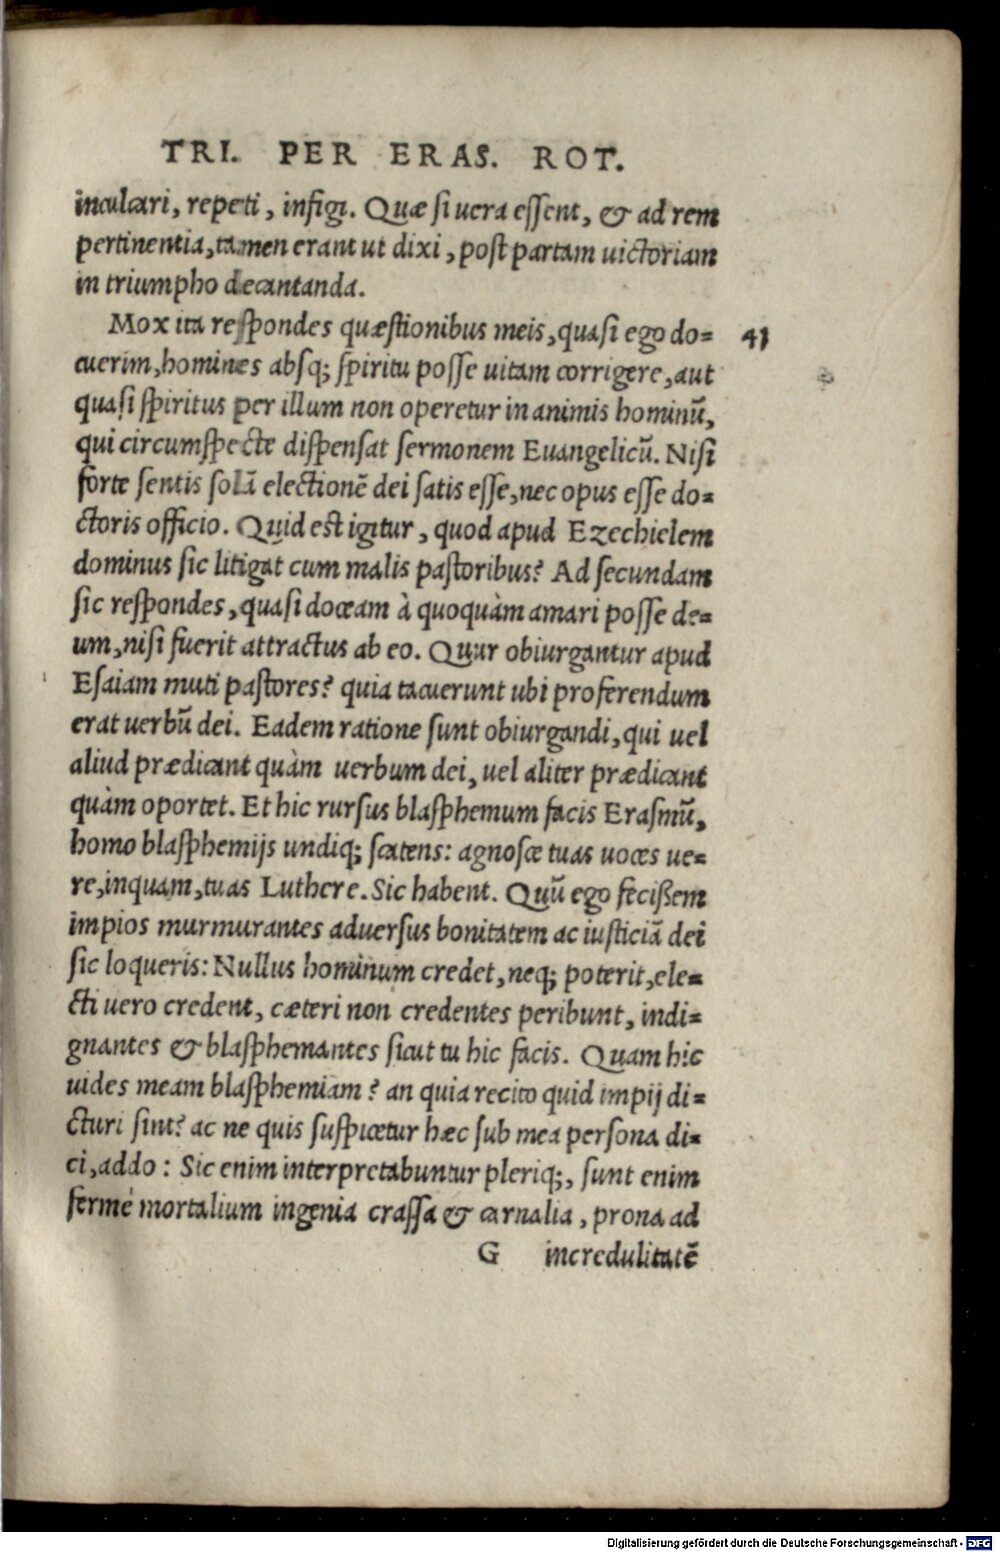 TRI. PER ERAS. ROT.
inculcari, repeti, infigi. Quæ si uera essent, & ad rem
pertinentia, tamen erant ut dixi, post partam uictoriam
in triumpho decantanda.
Mox ita respondes quæstionibus meis, quasi ego do=
cuerim, homines absq; spiritu posse uitam corrigere, aut
quasi spiritus per illum non operetur in animis hominũ,
qui circumspecte dispensat sermonem Euangelicũ. Nisi
forte sentis solã electionẽ dei satis esse, nec opus esse do=
ctoris officio. Quid est igitur, quod apud Ezechielem
dominus sic litigat cum malis pastoribus? Ad secundam
sic respondes, quasi doceam à quoquàm amari posse de=
um, nisi fuerit attractus ab eo. Quur obiurgantur apud
Esaiam muti pastores? quia tacuerunt ubi proferendum
erat uerbũ dei. Eadem ratione sunt obiurgandi, qui uel
aliud prædicant quàm uerbum dei, uel aliter prædicant
quàm oportet. Et hic rursus blasphemum facis Erasmũ,
homo blasphemijs undiq; scatens: agnosce tuas uoces ue=
re, inquam, tuas Luthere. Sic habent. Quũ ego fecißem
impios murmurantes aduersus bonitatem ac iusticiã dei
sic loqueris: Nullus hominum credet, neq; poterit, ele=
cti uero credent, cæteri non credentes peribunt, indi=
gnantes & blasphemantes sicut tu hic facis. Quam hic
uides meam blasphemiam? an quia recito quid impij di=
cturi sint? ac ne quis suspicetur hæc sub mea persona di=
ci, addo: Sic enim interpretabuntur pleriq;, sunt enim
fermè mortalium ingenia crassa & carnalia, prona ad
G incredulitatẽ
41
Digitalisierung gefördert durch die Deutsche Forschungsgemeinschaft - DFG